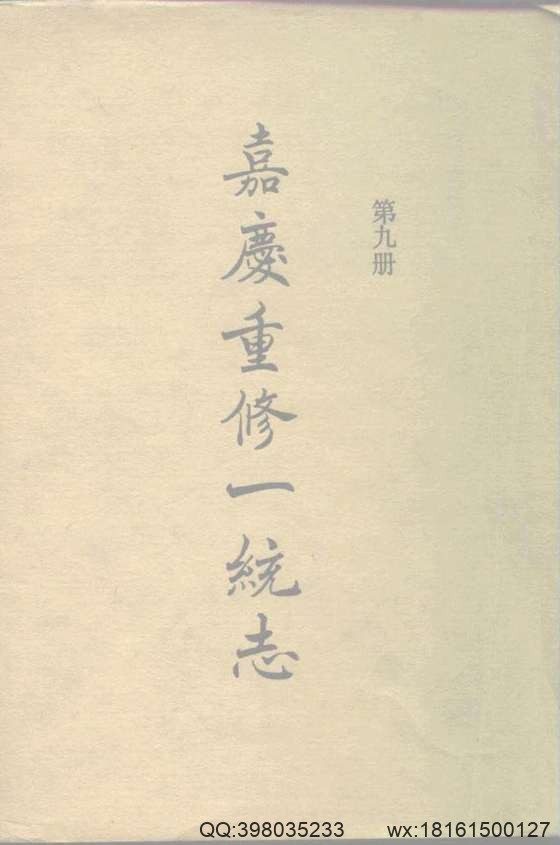 第九册
嘉慶重修一統志
QQ:398035233 wx:18161500127